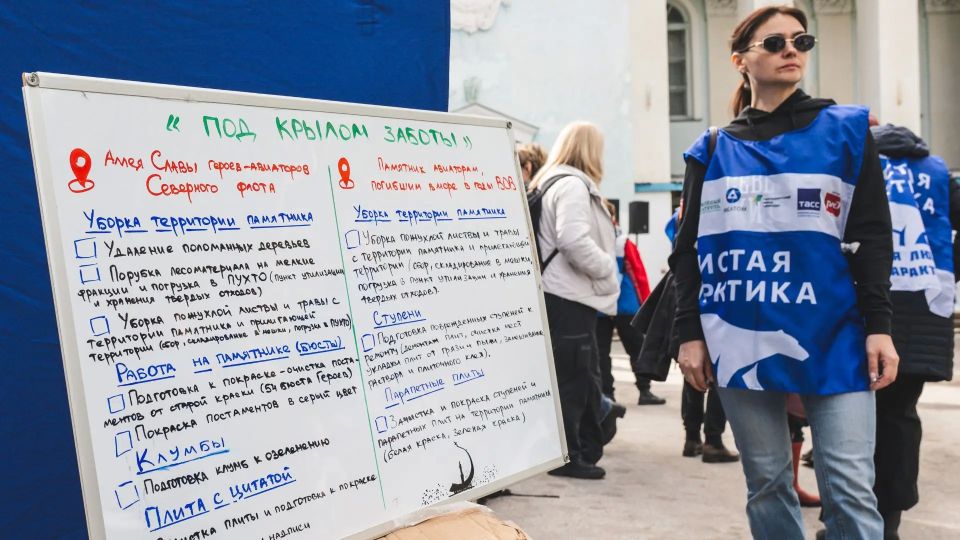 " ПОД КРЫЛОМ ЗАБОТЫ "
Аллея Славы героев-авиаторов
Северного флота
Уборка территории памятника
Удаление поломанных деревьев
Порубка лесоматериала на мелкие
фракции и погрузка в ПУХТО (пункт утилизации
и хранения твердых отходов)
Уборка пожухлой листвы и травы с
территории памятника и прилегающей
территории (сбор, складирование в мешки, погрузка в ПУХТО)
Работа на памятнике (бюсты)
Подготовка к покраске - очистка поста-
ментов от старой краски (54 бюста Героев)
Покраска постаментов в серый цвет
Клумбы
Подготовка клумб к озеленению
Плита с цитатой
Очистка плиты и подготовка к покраске
надписи
Памятник авиаторам,
погибшим в море в годы ВОВ
Уборка территории памятника
Уборка пожухлой листвы и травы
с территории памятника и прилегающей
территории (сбор, складирование в мешки
погрузка в пункт утилизации и хранения
твердых отходов).
Ступени
Подготовка поврежденных ступеней к
ремонту (демонтаж плит, очистка мест
укладки плит от грязи и пыли, замешивание
раствора и плиточного клея).
Парапетные плиты
Зачистка и покраска ступеней и
парапетных плит на территории памятника
(белая краска, зеленая краска)
ТАСС
ИСТАЯ
РКТИКА